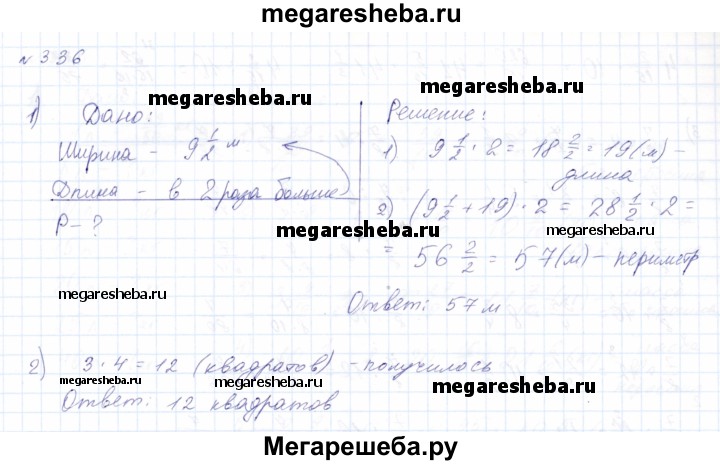 megaresheba.ru
№ 336
megaresheba.ru
1) Дано:
Ширина - 9 1/2 м
Длина - в 2 раза больше
P - ?
megaresheba.ru
megaresheba.ru
Решение:
megaresheba.ru
1) 9 1/2 · 2 = 18 2/2 = 19 (м) -
длина
2) (9 1/2 + 19) · 2 = 28 1/2 · 2 =
megaresheba.ru
= 56 2/2 = 57 (м) - периметр
Ответ: 57 м
megaresheba.ru
2) 3 · 4 = 12 (квадратов) - получилось
megaresheba.ru
megaresheba.ru
megaresheba.ru
Ответ: 12 квадратов
Мегарешеба.ру